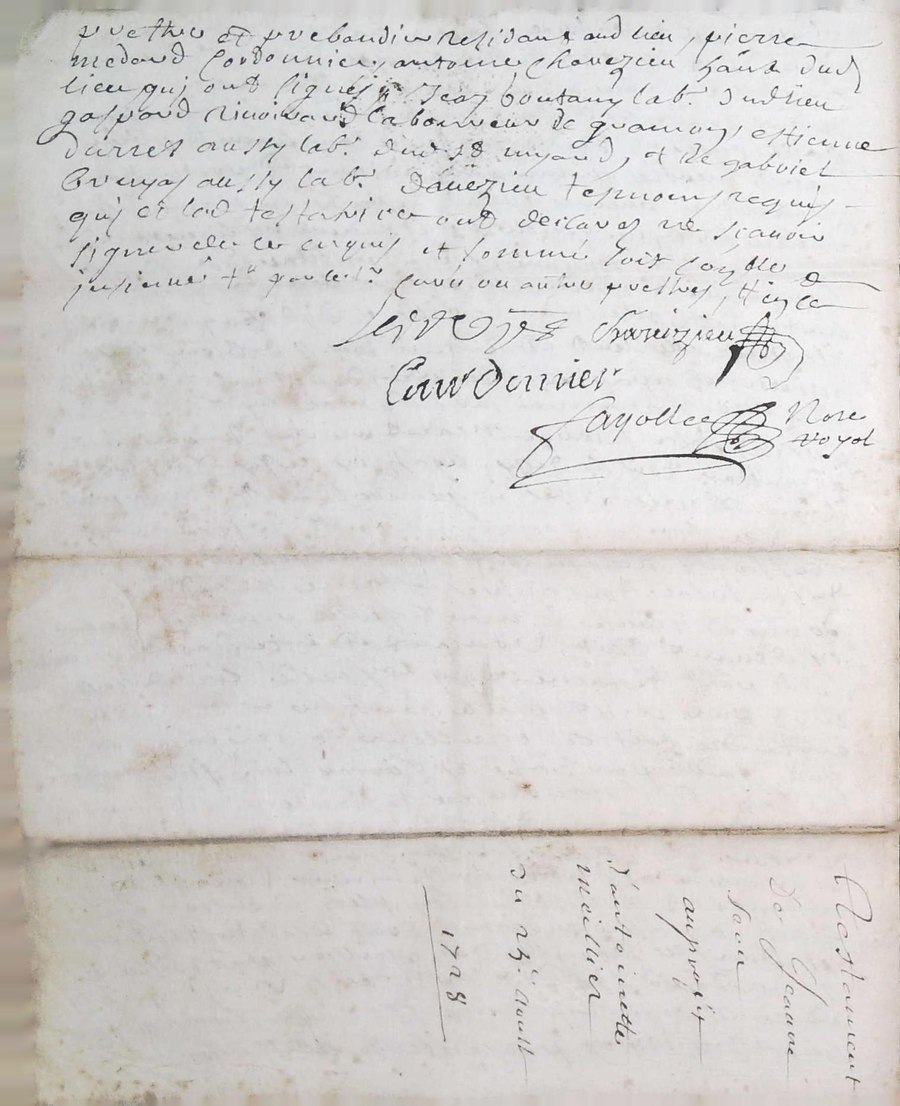 prethre et prebandier residant aud lieu, pierre
medard Cordonnier, antoine Chavezieu hant dud
lieu quj ont signés, Jean boutany lab.r dudlieu
gaspard laboureur de gramon, estienne
durret aussy lab.r dud myard, et de gabriel
aussy lab.r davezieu tesmoins requis
quj et lad testatrice ont desclaré ne sçauoir
signer de ce enquis et sommé soit
jnsinué par curé ou autre prethre,
Chavizieu
Courdonnier
fayolle Nore
royol
Testament
De Jeanne
au profit
d'antoinette
meillier
du 25.e aoust
1728